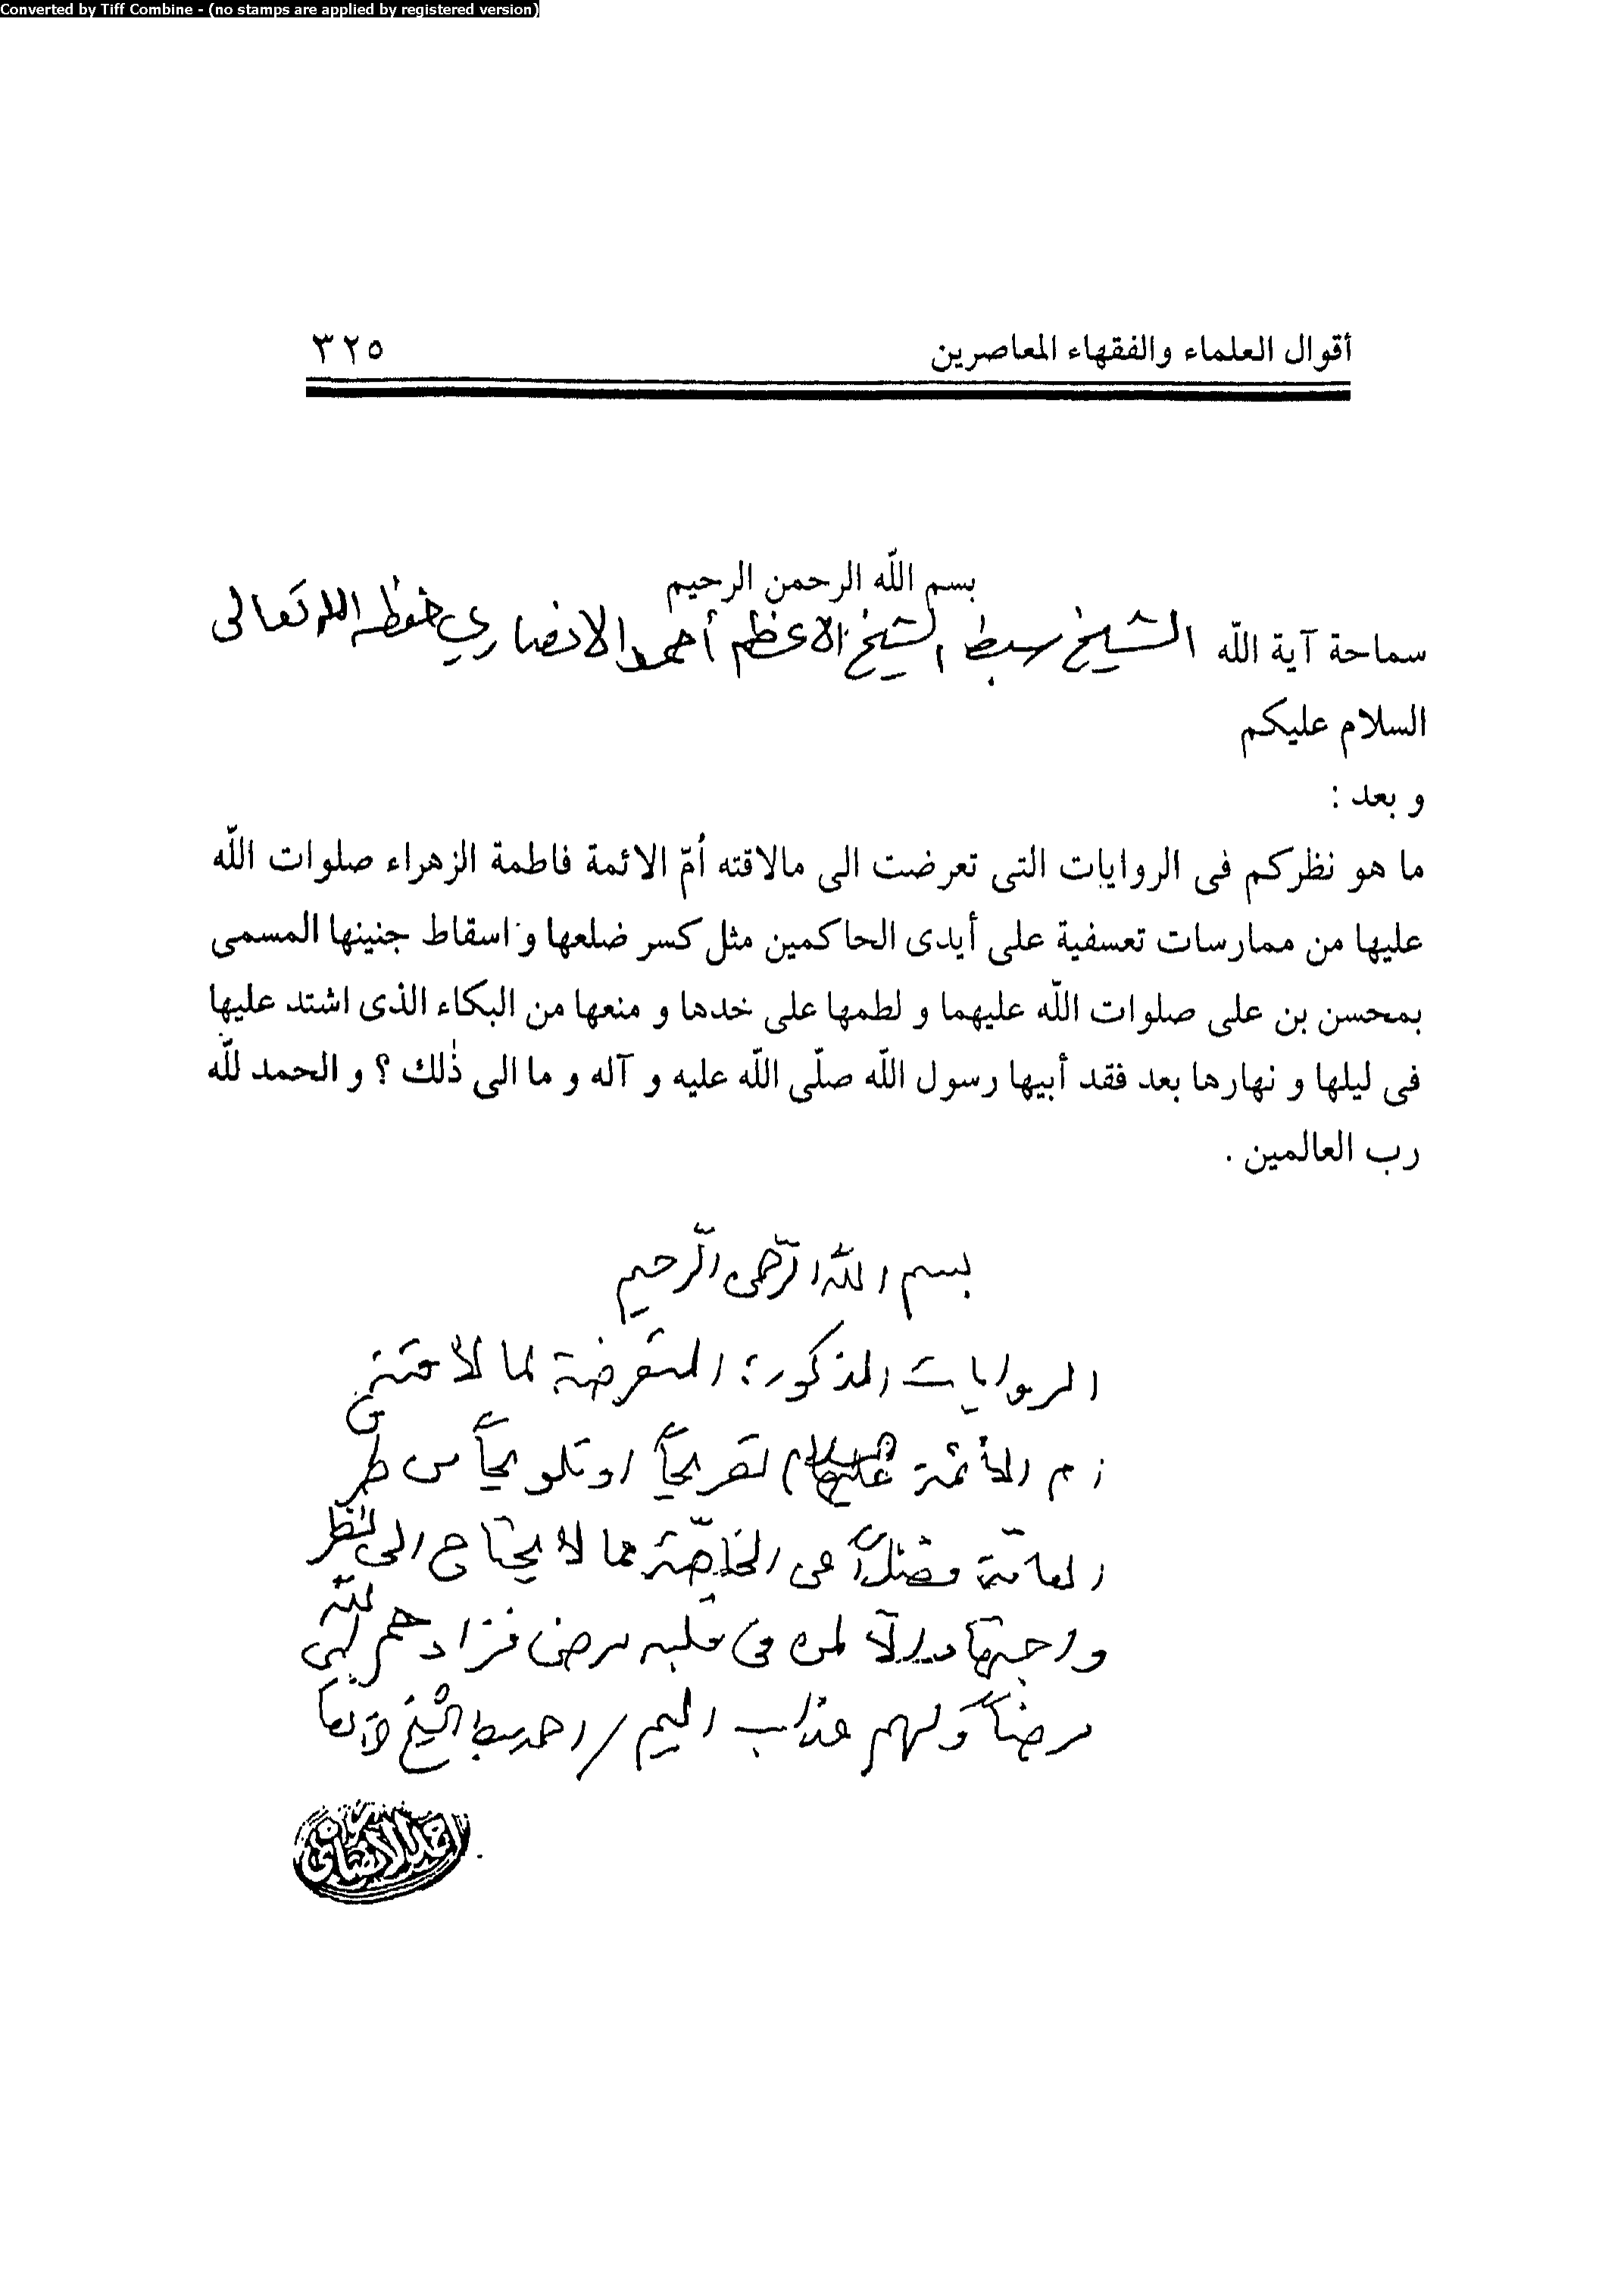 Converted by Tiff Combine - (no stamps are applied by registered version)
أقوال العلماء والفقهاء المعاصرين ٣٢٥
بسم اللّه الرحمن الرحيم
سماحة آية اللّه الشيخ سبط الشيخ الاعظم أحمد الانصاري حفظه الله تعالى
السلام عليكم
و بعد :
ما هو نظركم فى الروايات التى تعرضت الى مالاقته أمّ الائمة فاطمة الزهراء صلوات اللّه
عليها من ممارسات تعسفية على أيدى الحاكمين مثل كسر ضلعها و اسقاط جنينها المسمى
بمحسن بن على صلوات اللّه عليهما و لطمها على خدها و منعها من البكاء الذى اشتد عليها
فى ليلها و نهارها بعد فقد أبيها رسول اللّه صلّى اللّه عليه و آله و ما الى ذٰلك ؟ و الحمد للّه
رب العالمين .
بسم اللّه الرّحمن الرّحيم
الروايات المذكورة المتعرضة لما لاقته
ام الأئمة عليها السلام تصريحاً او تلويحاً من طرق
العامّة فضلاً عن الخاصّة مما لا يحتاج الى النظر
فى قلبه مرض فزادهم اللّه
مرضاً ولهم عذاب اليم / احمد سبط الشيخ الانصاري
احمد الانصاري